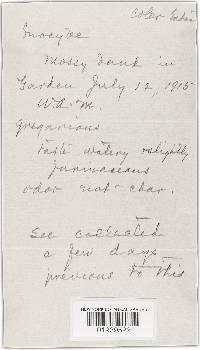 Color
Inocybe
Mossy bank in
Garden July 12, 1915
W.A.M.
gregarious
taste watery & slightly
farinaceous
odor not char.
See collected
a few days
previous to this
NEW YORK BOTANICAL GARDEN